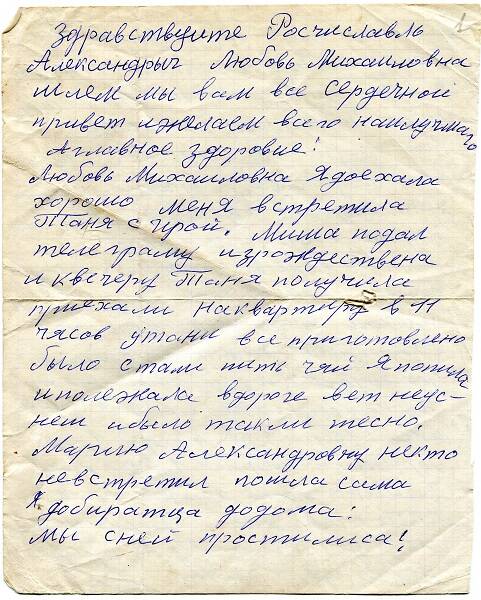 1
Здравствуите Росчиславль
Александрыч Любовь Михаиловна
шлем мы вам все Сердечной
привет ижелаем всего наилучмаго
Аглавное здоровие!
Любовь Михаиловна Ядоехала
хорошо меня встретила
Таня с Ирой. Миша подал
телеграму изрождествена
и квечеру Таня получила
приехали наквартиру в 11
чясов утани все приготовлено
было стали пить чяй Япопила
иполежала вдороге ветнеус-
неш ибыло такли тесно.
Марию Александровну некто
невстретил пошла сама
Я добиратца додома:
мы сней простилиса!